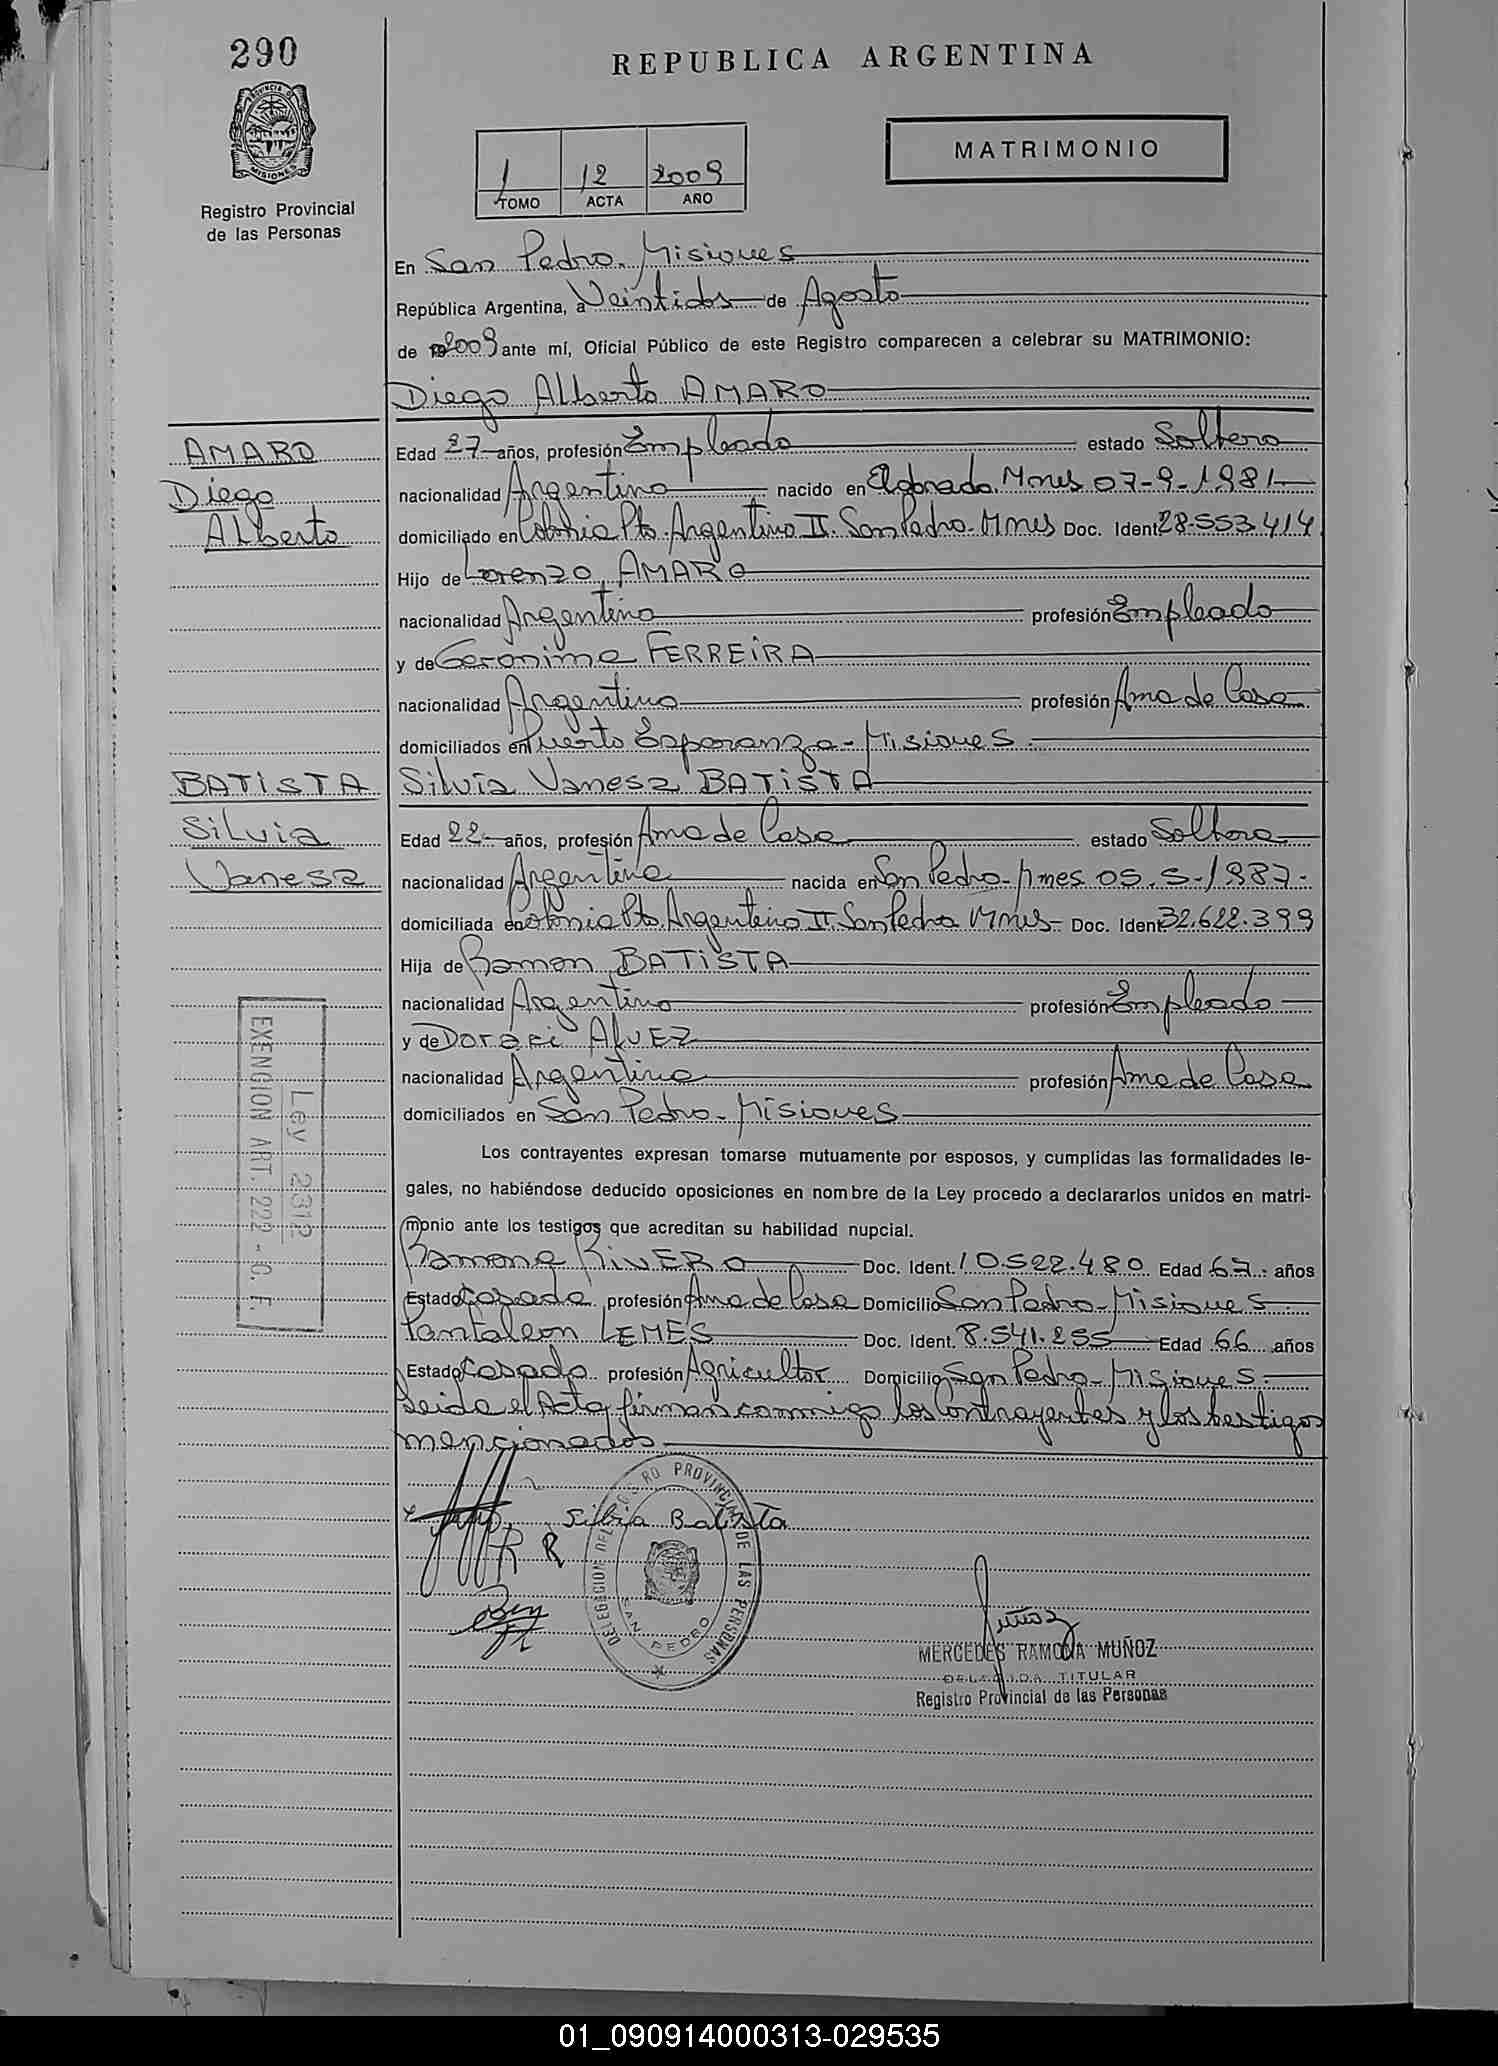 290
REPUBLICA ARGENTINA
PROVINCIA D
MISIONES
MATRIMONIO
1 12 2009
TOMO ACTA AÑO
Registro Provincial
de las Personas
En San Pedro. Misiones
República Argentina, a Veintidos de Agosto
de 2009 ante mí, Oficial Público de este Registro comparecen a celebrar su MATRIMONIO:
Diego Alberto AMARO
AMARO
Diego
Alberto
Edad 27 años, profesión Empleado estado Soltero
nacionalidad Argentino nacido en Eldorado. Mnes 07-9-1981
domiciliado en Colonia Pto. Argentino II. San Pedro. Mnes Doc. Ident 28.553.414
Hijo de Lorenzo AMARO
nacionalidad Argentino profesión Empleado
y de Geronima FERREiRA
nacionalidad Argentina profesión Ama de Casa
domiciliados en Puerto Esperanza - Misiones
BATiSTA
Silvia
Vanesa
Silvia Vanesa BATiSTA
Edad 22 años, profesión Ama de Casa estado Soltera
nacionalidad Argentina nacida en San Pedro - Mnes 05.5-1987-
domiciliada en Colonia Pto. Argentino II. San Pedro Mnes- Doc. Ident 32.622.399
Hija de Ramon BATiSTA
nacionalidad Argentino profesión Empleado
y de Doraci AlvEZ
nacionalidad Argentina profesión Ama de Casa
domiciliados en San Pedro - Misiones
Ley 2312
EXENCION ART. 222 - C. F.
Los contrayentes expresan tomarse mutuamente por esposos, y cumplidas las formalidades le-
gales, no habiéndose deducido oposiciones en nombre de la Ley procedo a declararlos unidos en matri-
monio ante los testigos que acreditan su habilidad nupcial.
Ramona RivERO Doc. Ident. 10.522.480 Edad 67 años
Estado Casada profesión Ama de Casa Domicilio San Pedro - Misiones
Pantaleon LEMES Doc. Ident. 8.541.255 Edad 66 años
Estado Casado profesión Agricultor Domicilio San Pedro - Misiones
Leida el Acta, firman conmigo los Contrayentes y los testigos
mencionados
Silvia Batista
R R
DELEGACION DEL REGISTRO PROVINCIAL DE LAS PERSONAS
SAN PEDRO
Muñoz
MERCEDES RAMONA MUÑOZ
DELEGADA TITULAR
Registro Provincial de las Personas
01_090914000313-029535